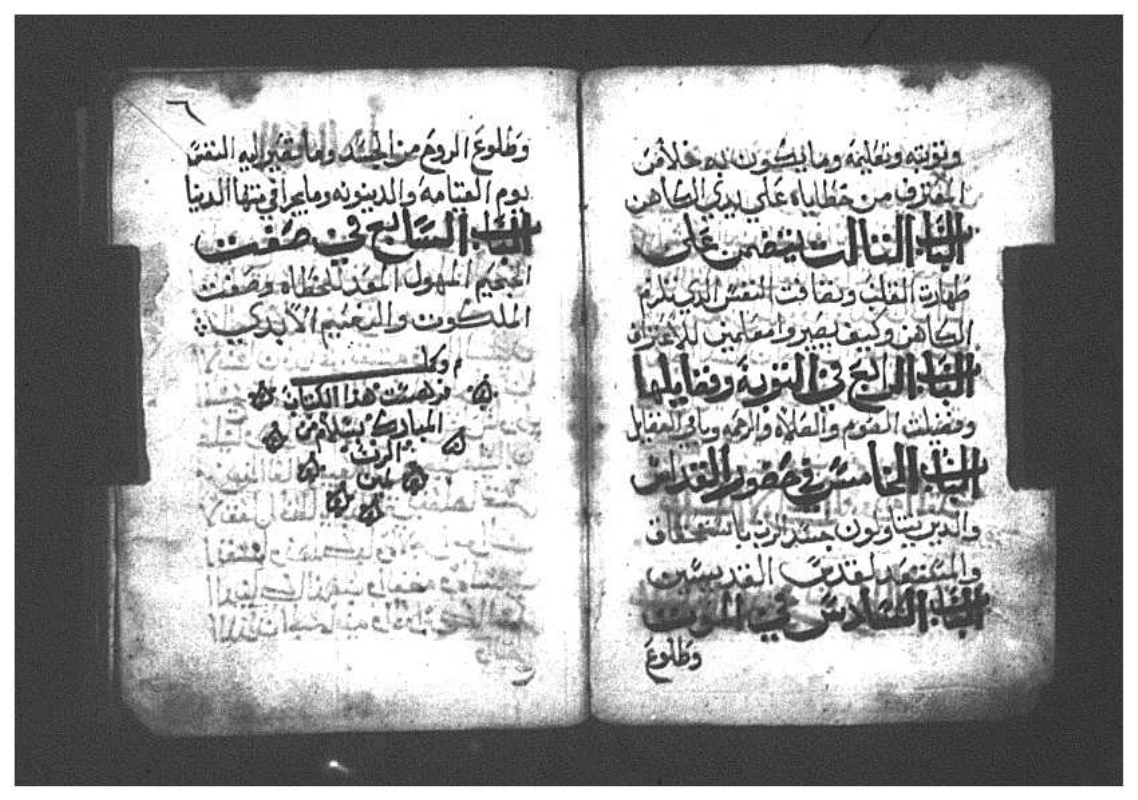 وتوبته وتعليمه وما يكون به خلاص
المعترف من خطاياه علي يدي الكاهن
الباب التالت يتضمن علي
طهارت القلب ونقاوت النفس الدي تلزم
الكاهن وكيف يصيروا معلمين للاعتراف
الباب الرابع في التوبه وفضايلها
وفضيلت الصوم والصلاه والرحمه وباقي الفضايل
الباب الخامس في حضور القداس
والدين يتناولون جسد الرب باستحقاق
والمستعد لقدس القديسين
الباب السادس في الموت
وطلوع
٦
وطلوع الروح من الجسد وما تصير اليه النفس
يوم القيامه والدينونه وما يجرا في منتهاا الدنيا
الباب السابع في صفت
الجحيم المهول المعد للخطاه وصفت
الملكوت والنعيم الابدي
وكمل
فرهست هدا الكتاب
المبارك بسلام من
الرب
امين